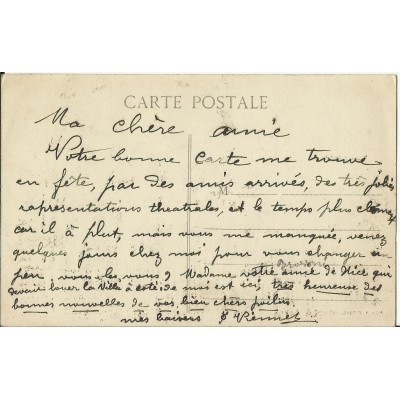 CARTE POSTALE
Ma chère amie
Votre bonne Carte me trouve
en fête, par des amis arrivés, des très jolies
raprésentations theatrales, et le temps plus
car il à plut, mais vous me manquée, venez
quelques jours chez moi pour vous changer
peu vous-les-vous ? Madame votre amie de Nice qui
devait louer la Villa à coté de moi est ici, très heureuse des
bonnes nouvelles de vos bien chers poilus.
mes baisers